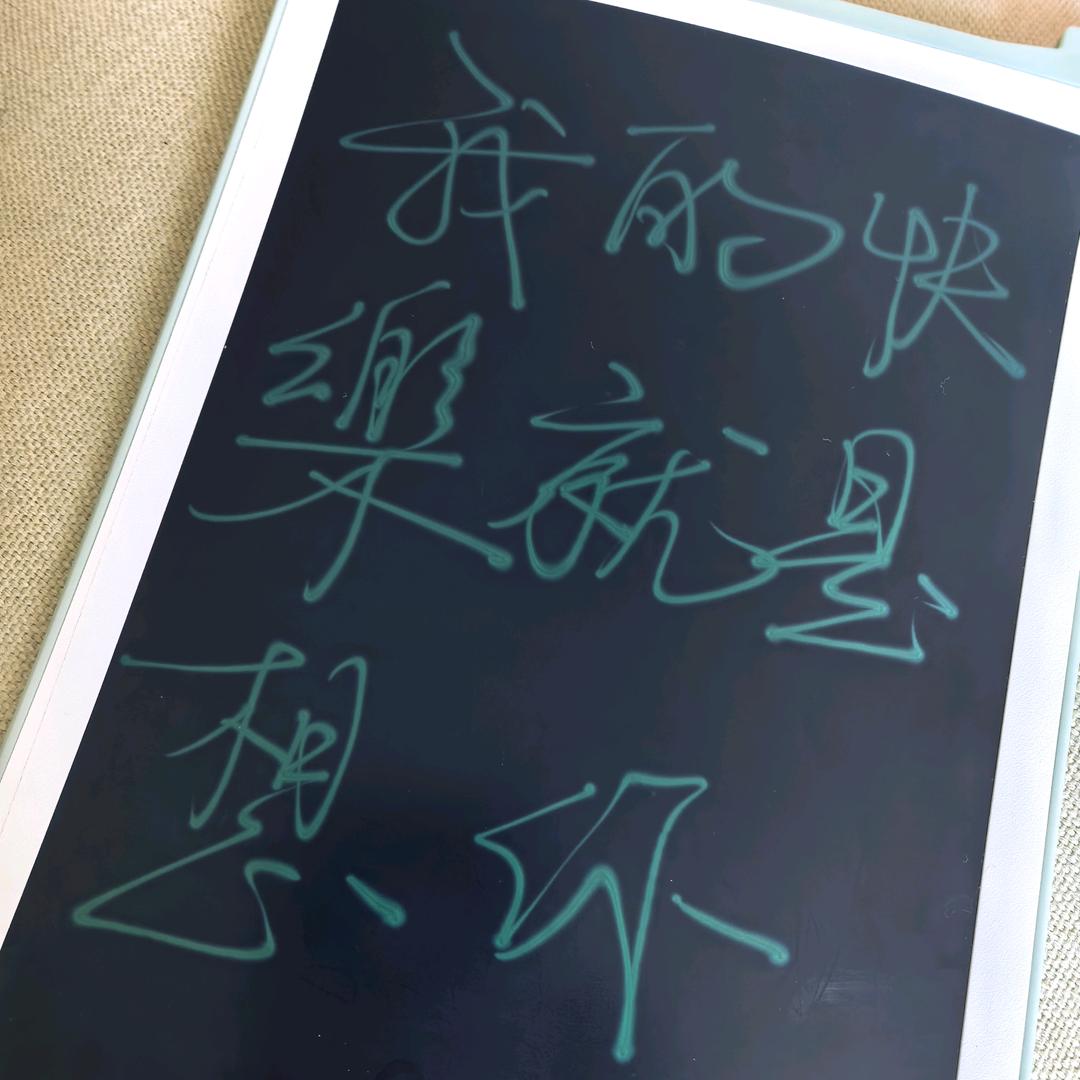 我的快
樂就是
想你